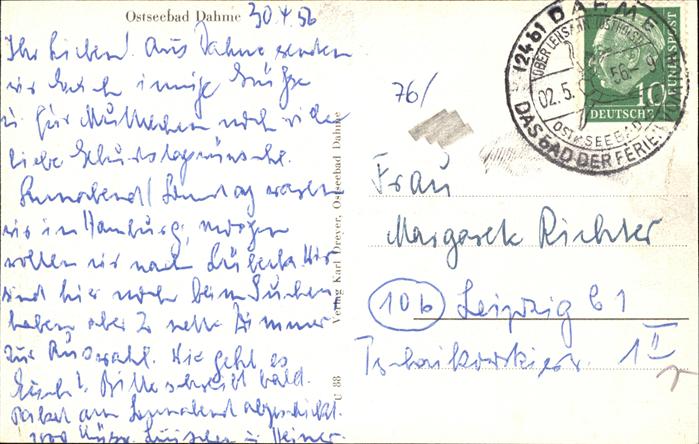 Ostseebad Dahme 30.4.56
Ihr Lieben! Aus Dahme senden
wir Euch innige Grüße
u. für Muttchen noch viele
liebe Geburtstagswünsche.
Sonnabend/Sonntag waren
wir in Hamburg, morgen
wollen wir nach Lübeck. Wir
sind hier noch beim Suchen
haben aber 2 nette Zimmer
zur Auswahl. Wie geht es
Euch? Bitte schreibt bald.
Paket am Sonnabend abgeschickt.
1000 Küsse Luischen u. Heiner.
Verlag Karl Dreyer, Ostseebad Dahme
U 88
76/
(24b) DAHME
ÜBER LENSAHN (OSTHOLST)
02.5. 56 - 9
OSTSEEBAD
DAS BAD DER FERIEN
10
DEUTSCHE BUNDESPOST
Frau
Margarete Richter
10b Leipzig C 1
Tschaikowskistr. 1 II